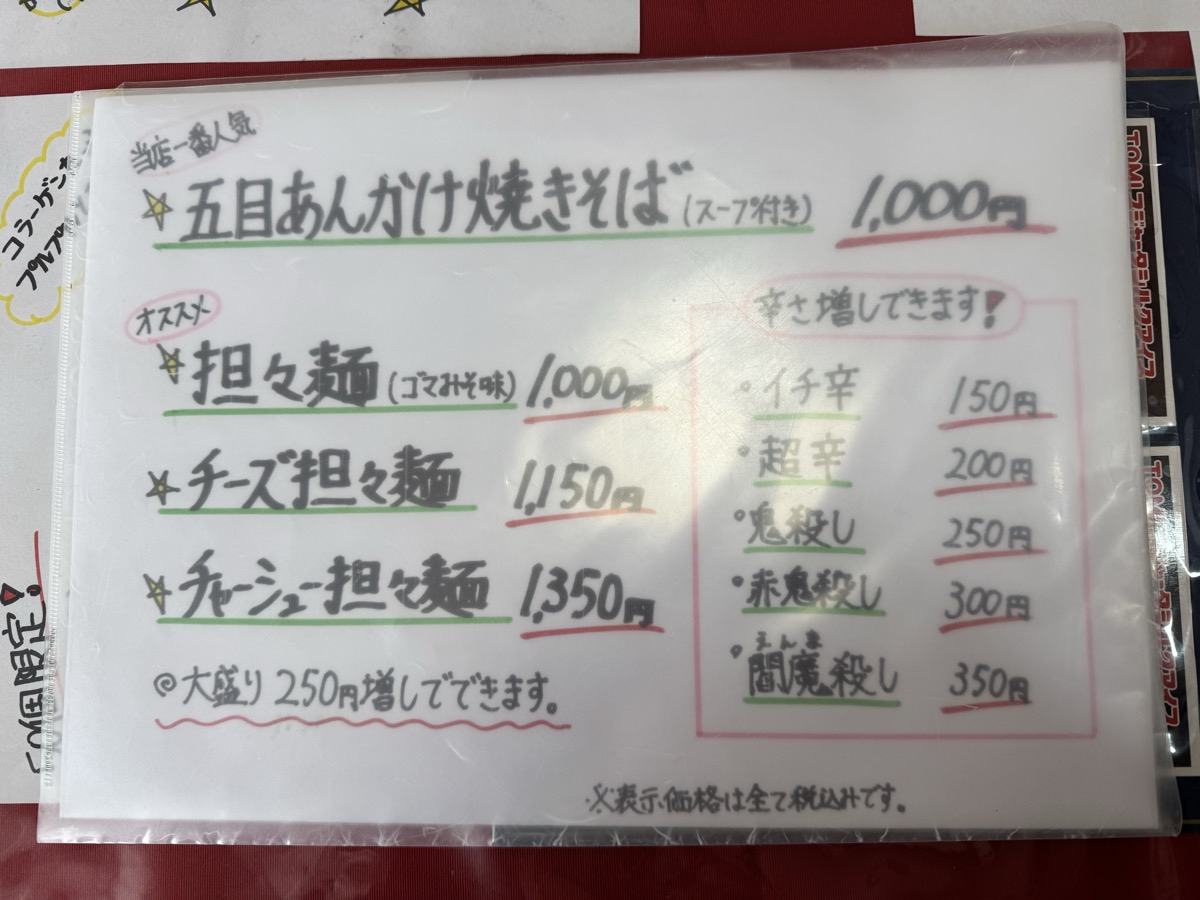 当店一番人気
五目あんかけ焼きそば(スープ付き) 1,000円
オススメ
担々麺(ゴマみそ味) 1,000円
チーズ担々麺 1,150円
チャーシュー担々麺 1,350円
◎大盛り250円増しでできます。
辛さ増しできます!
・イチ辛 150円
・超辛 200円
・鬼殺し 250円
・赤鬼殺し 300円
えんま
・閻魔殺し 350円
※表示価格は全て税込みです。
コラーゲン
限定!